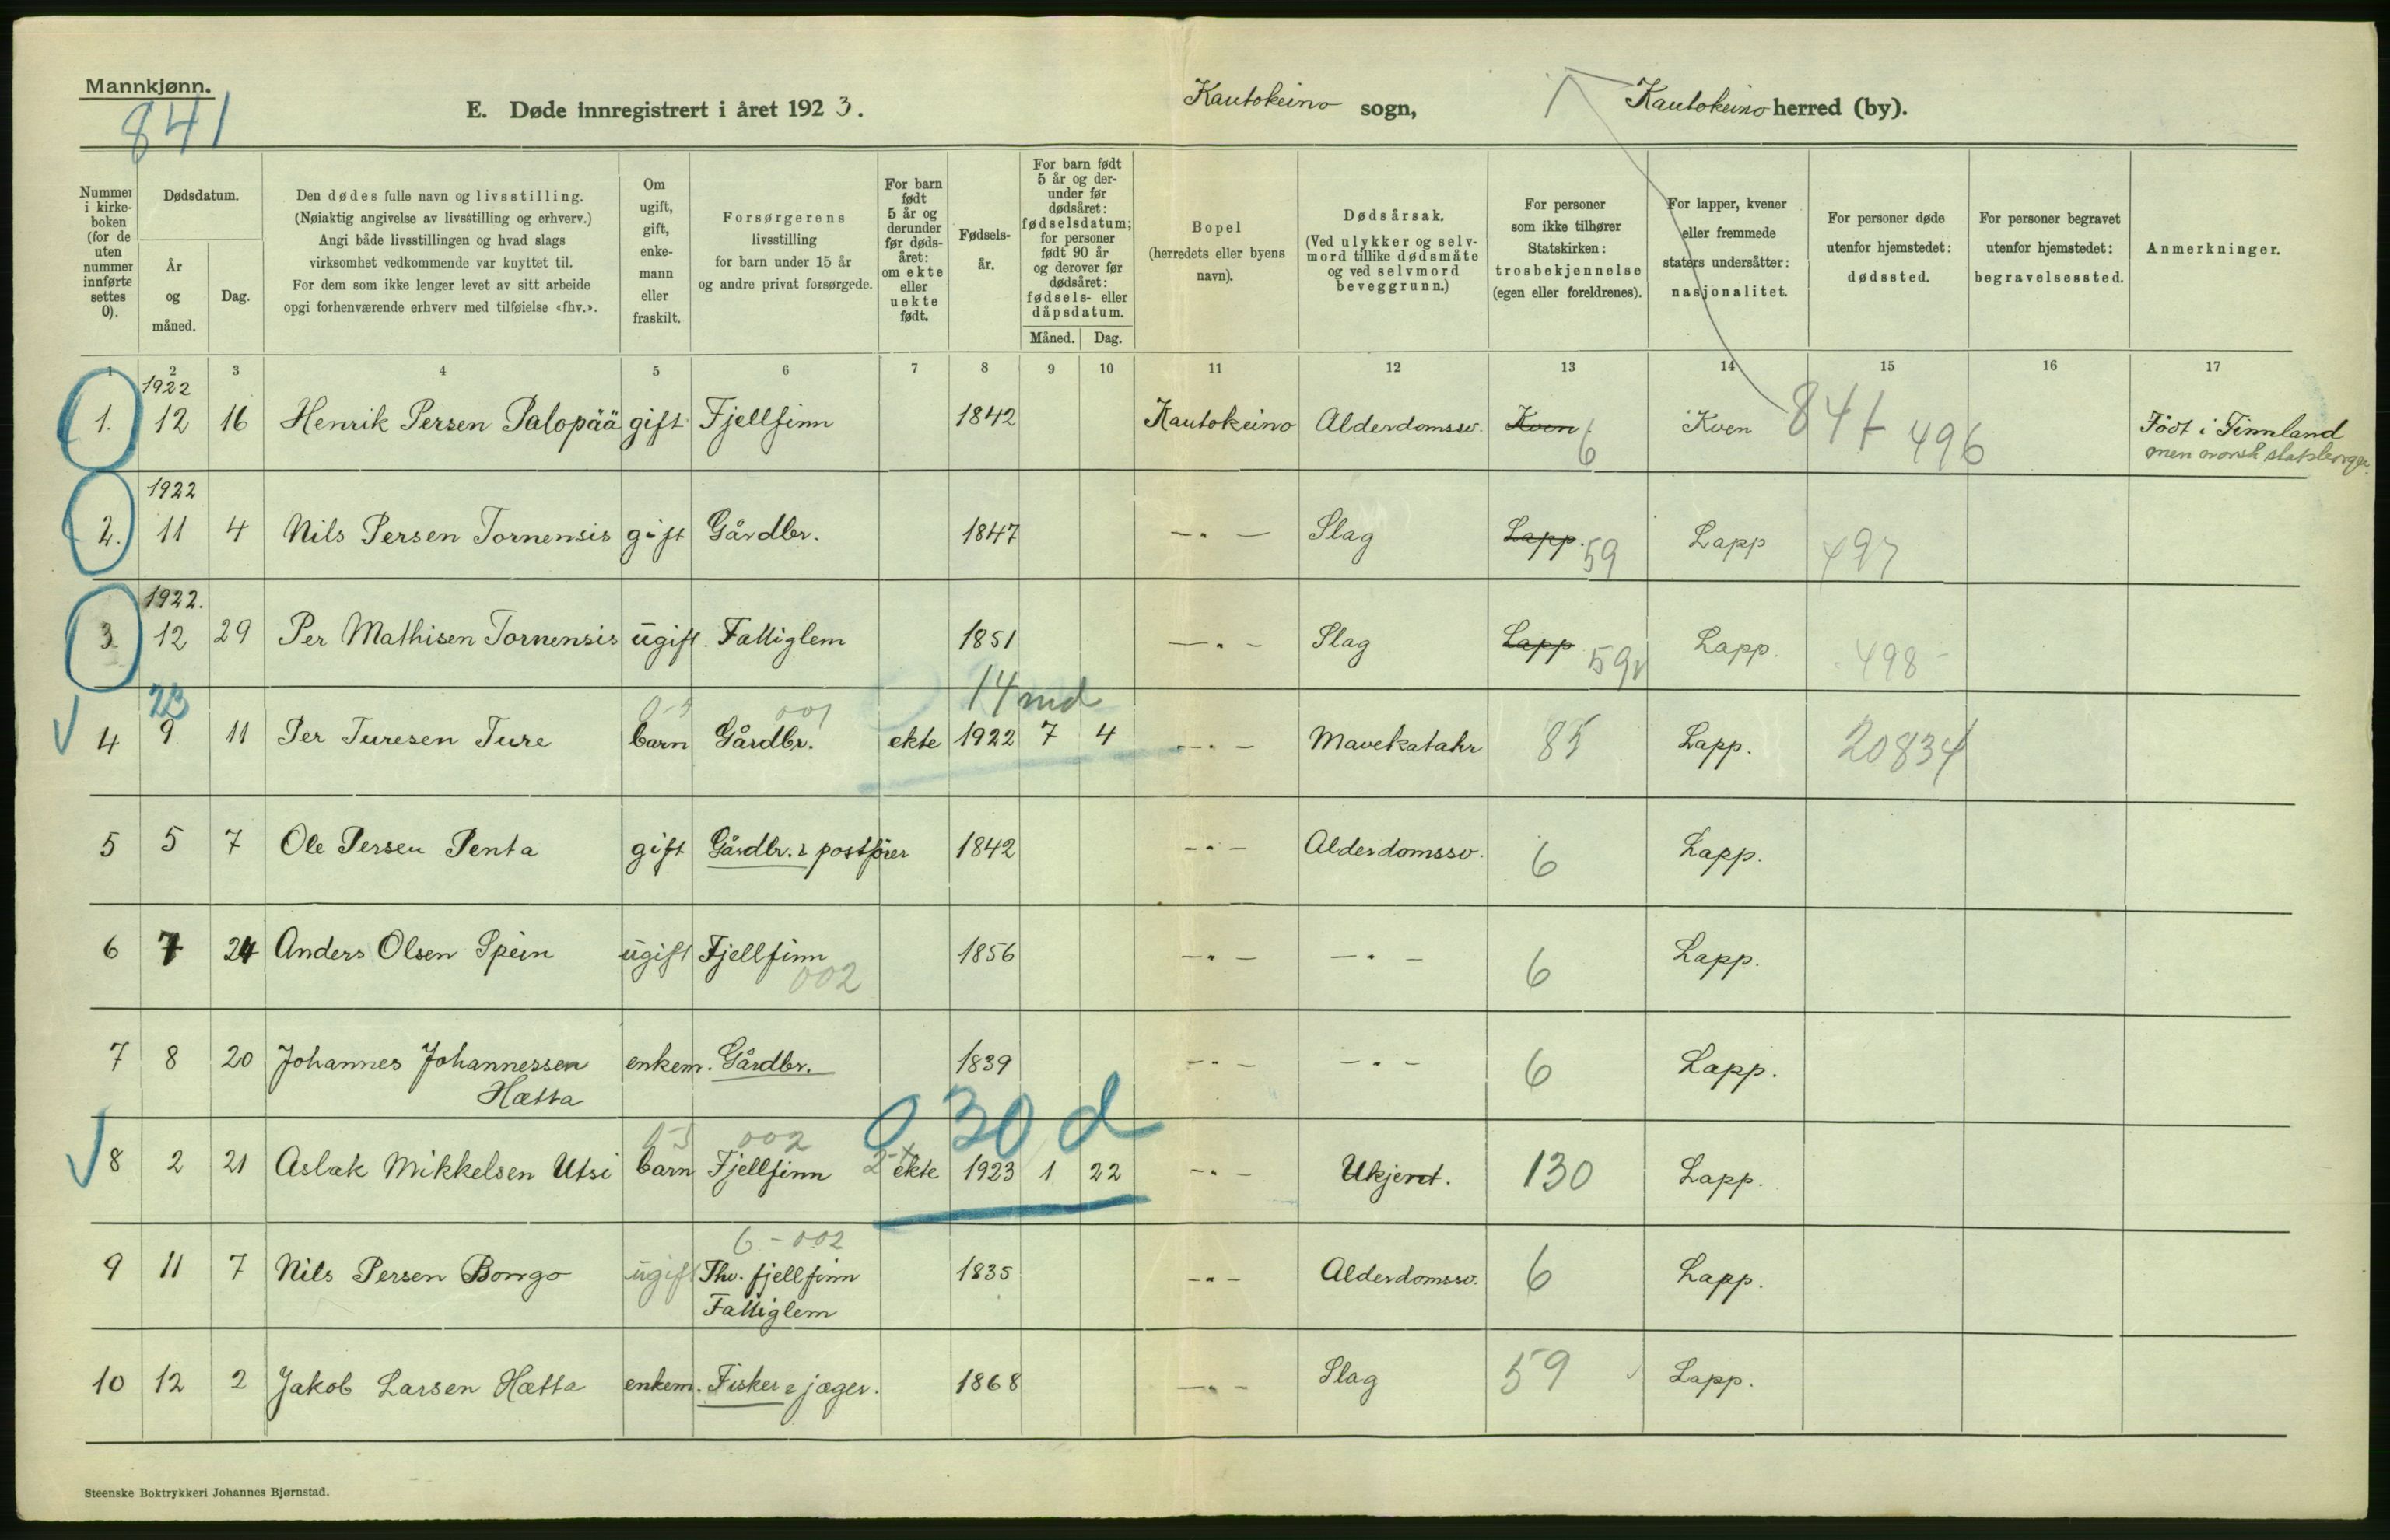 Mannkjønn.
841
E. Døde innregistrert i året 1923.
Kautokeino sogn,
Kautokeino herred (by).
Nummer i kirke-boken (for de uten nummer innførte settes 0).
Dødsdatum.
År og måned.
Dag.
Den dødes fulle navn og livsstilling.
(Nøiaktig angivelse av livsstilling og erhverv.)
Angi både livsstillingen og hvad slags
virksomhet vedkommende var knyttet til.
For dem som ikke lenger levet av sitt arbeide
opgi forhenværende erhverv med tilføielse «fhv.».
Om ugift, gift, enke-mann eller fraskilt.
Forsørgerens
livsstilling
for barn under 15 år
og andre privat forsørgede.
For barn født 5 år og derunder før døds-året: om ekte eller uekte født.
Fødsels-år.
For barn født 5 år og der-under før dødsåret: fødselsdatum; for personer født 90 år og derover før dødsåret: fødsels- eller dåpsdatum.
Måned. Dag.
Bopel
(herredets eller byens navn).
Dødsårsak.
(Ved ulykker og selv-mord tillike dødsmåte og ved selvmord beveggrunn.)
For personer som ikke tilhører Statskirken: trosbekjennelse (egen eller foreldrenes).
For lapper, kvener eller fremmede staters undersåtter: nasjonalitet.
For personer døde utenfor hjemstedet: dødssted.
For personer begravet utenfor hjemstedet: begravelsessted.
Anmerkninger.
1 2 3 4 5 6 7 8 9 10 11 12 13 14 15 16 17
1922
1. 12 16 Henrik Persen Palopää gift Fjellfinn 1842 Kautokeino Alderdomssv. Kven 6 Kven 841 496 Födt i Finnland
men norsk statsborger.
1922
2. 11 4 Nils Persen Tornensis gift Gårdbr. 1847 -"- Slag Lapp. 59 Lapp 497
1922.
3. 12 29 Per Mathisen Tornensis ugift. Fattiglem 1851 -"- Slag Lapp 59 Lapp. 498
23 0-5 001 14 md
4 9 11 Per Turesen Ture barn Gårdbr. ekte 1922 7 4 -"- Mavekatahr 85 Lapp. 20834
5 5 7 Ole Persen Penta gift Gårdbr. & postfører 1842 -"- Alderdomssv. 6 Lapp.
6 7 24 Anders Olsen Spein ugift Fjellfinn 1856 -"- -"- 6 Lapp.
002
7 8 20 Johannes Johannessen enkem. Gårdbr. 1839 -"- -"- 6 Lapp.
Hætta
0-5 002 0 30 d
8 2 21 Aslak Mikkelsen Utsi barn Fjellfinn ekte 1923 1 22 -"- Ukjent. 130 Lapp.
6-002
9 11 7 Nils Persen Bongo ugift Fhv. fjellfinn 1835 -"- Alderdomssv. 6 Lapp.
Fattiglem
10 12 2 Jakob Larsen Hætta enkem. Fisker & jæger. 1868 -"- Slag 59 Lapp.
Steenske Boktrykkeri Johannes Bjørnstad.